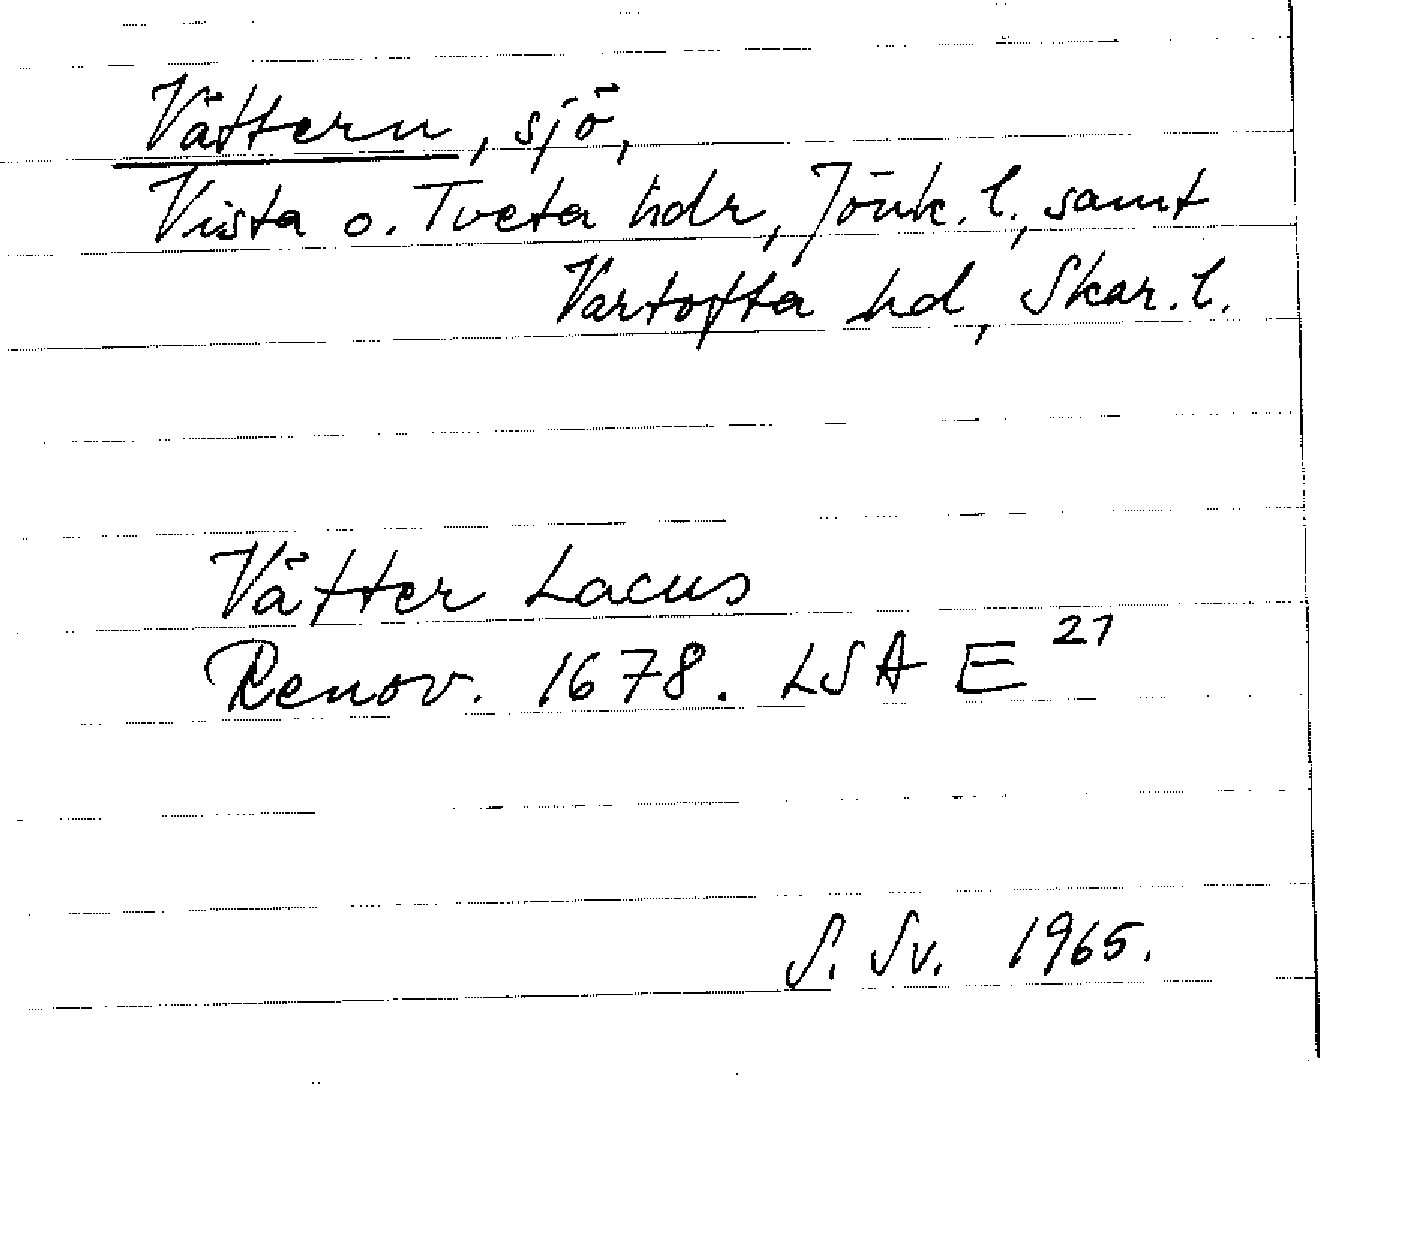 Vättern, sjö,
Vista o. Tveta hdr, Jönk. l., samt
Vartofta hd, Skar. l.
Vätter Lacus
Renov. 1678. LSA E 27
S. Sv. 1965.